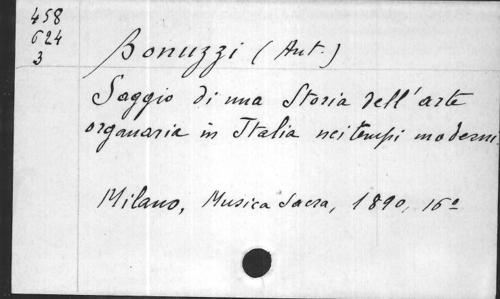 458
624
3
Bonuzzi (Ant.)
Saggio di una Storia dell'arte
organaria in Italia nei tempi moderni.
Milano, Musica Sacra, 1890, 16º